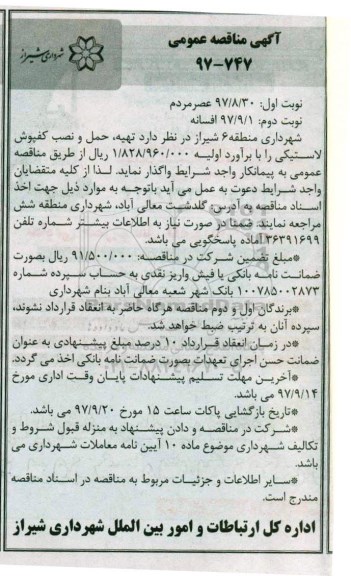 آگهی مناقصه عمومی
۹۷-۷۴۷
شهرداری شیراز
نوبت اول: ۹۷/۸/۳۰ عصرمردم
نوبت دوم: ۹۷/۹/۱ افسانه
شهرداری منطقه۶ شیراز در نظر دارد تهیه، حمل و نصب کفپوش
لاستیکی را با برآورد اولیه ۱/۸۲۸/۹۶۰/۰۰۰ ریال از طریق مناقصه
عمومی به پیمانکار واجد شرایط واگذار نماید. لذا از کلیه متقضایان
واجد شرایط دعوت به عمل می آید باتوجه به موارد ذیل جهت اخذ
اسناد مناقصه به آدرس: گلدشت معالی آباد، شهرداری منطقه شش
مراجعه نمایند. ضمنا در صورت نیاز به اطلاعات بیشتر شماره تلفن
۳۶۳۹۱۶۹۹ آماده پاسخگویی می باشد.
*مبلغ تضمین شرکت در مناقصه: ۹۱/۵۰۰/۰۰۰ ریال بصورت
ضمانت نامه بانکی یا فیش واریز نقدی به حساب سپرده شماره
۱۰۰۷۸۵۰۰۲۸۷۳ بانک شهر شعبه معالی آباد بنام شهرداری
*برندگان اول و دوم مناقصه هرگاه حاضر به انعقاد قرارداد نشوند،
سپرده آنان به ترتیب ضبط خواهد شد.
*در زمان انعقاد قرارداد ۱۰ درصد مبلغ پیشنهادی به عنوان
ضمانت حسن اجرای تعهدات بصورت ضمانت نامه بانکی اخذ می گردد.
*آخرین مهلت تسلیم پیشنهادات پایان وقت اداری مورخ
۹۷/۹/۱۴ می باشد.
*تاریخ بازگشایی پاکات ساعت ۱۵ مورخ ۹۷/۹/۲۰ می باشد.
*شرکت در مناقصه و دادن پیشنهاد به منزله قبول شروط و
تکالیف شهرداری موضوع ماده ۱۰ آیین نامه معاملات شهرداری می
باشد.
*سایر اطلاعات و جزئیات مربوط به مناقصه در اسناد مناقصه
مندرج است.
اداره کل ارتباطات و امور بین الملل شهرداری شیراز